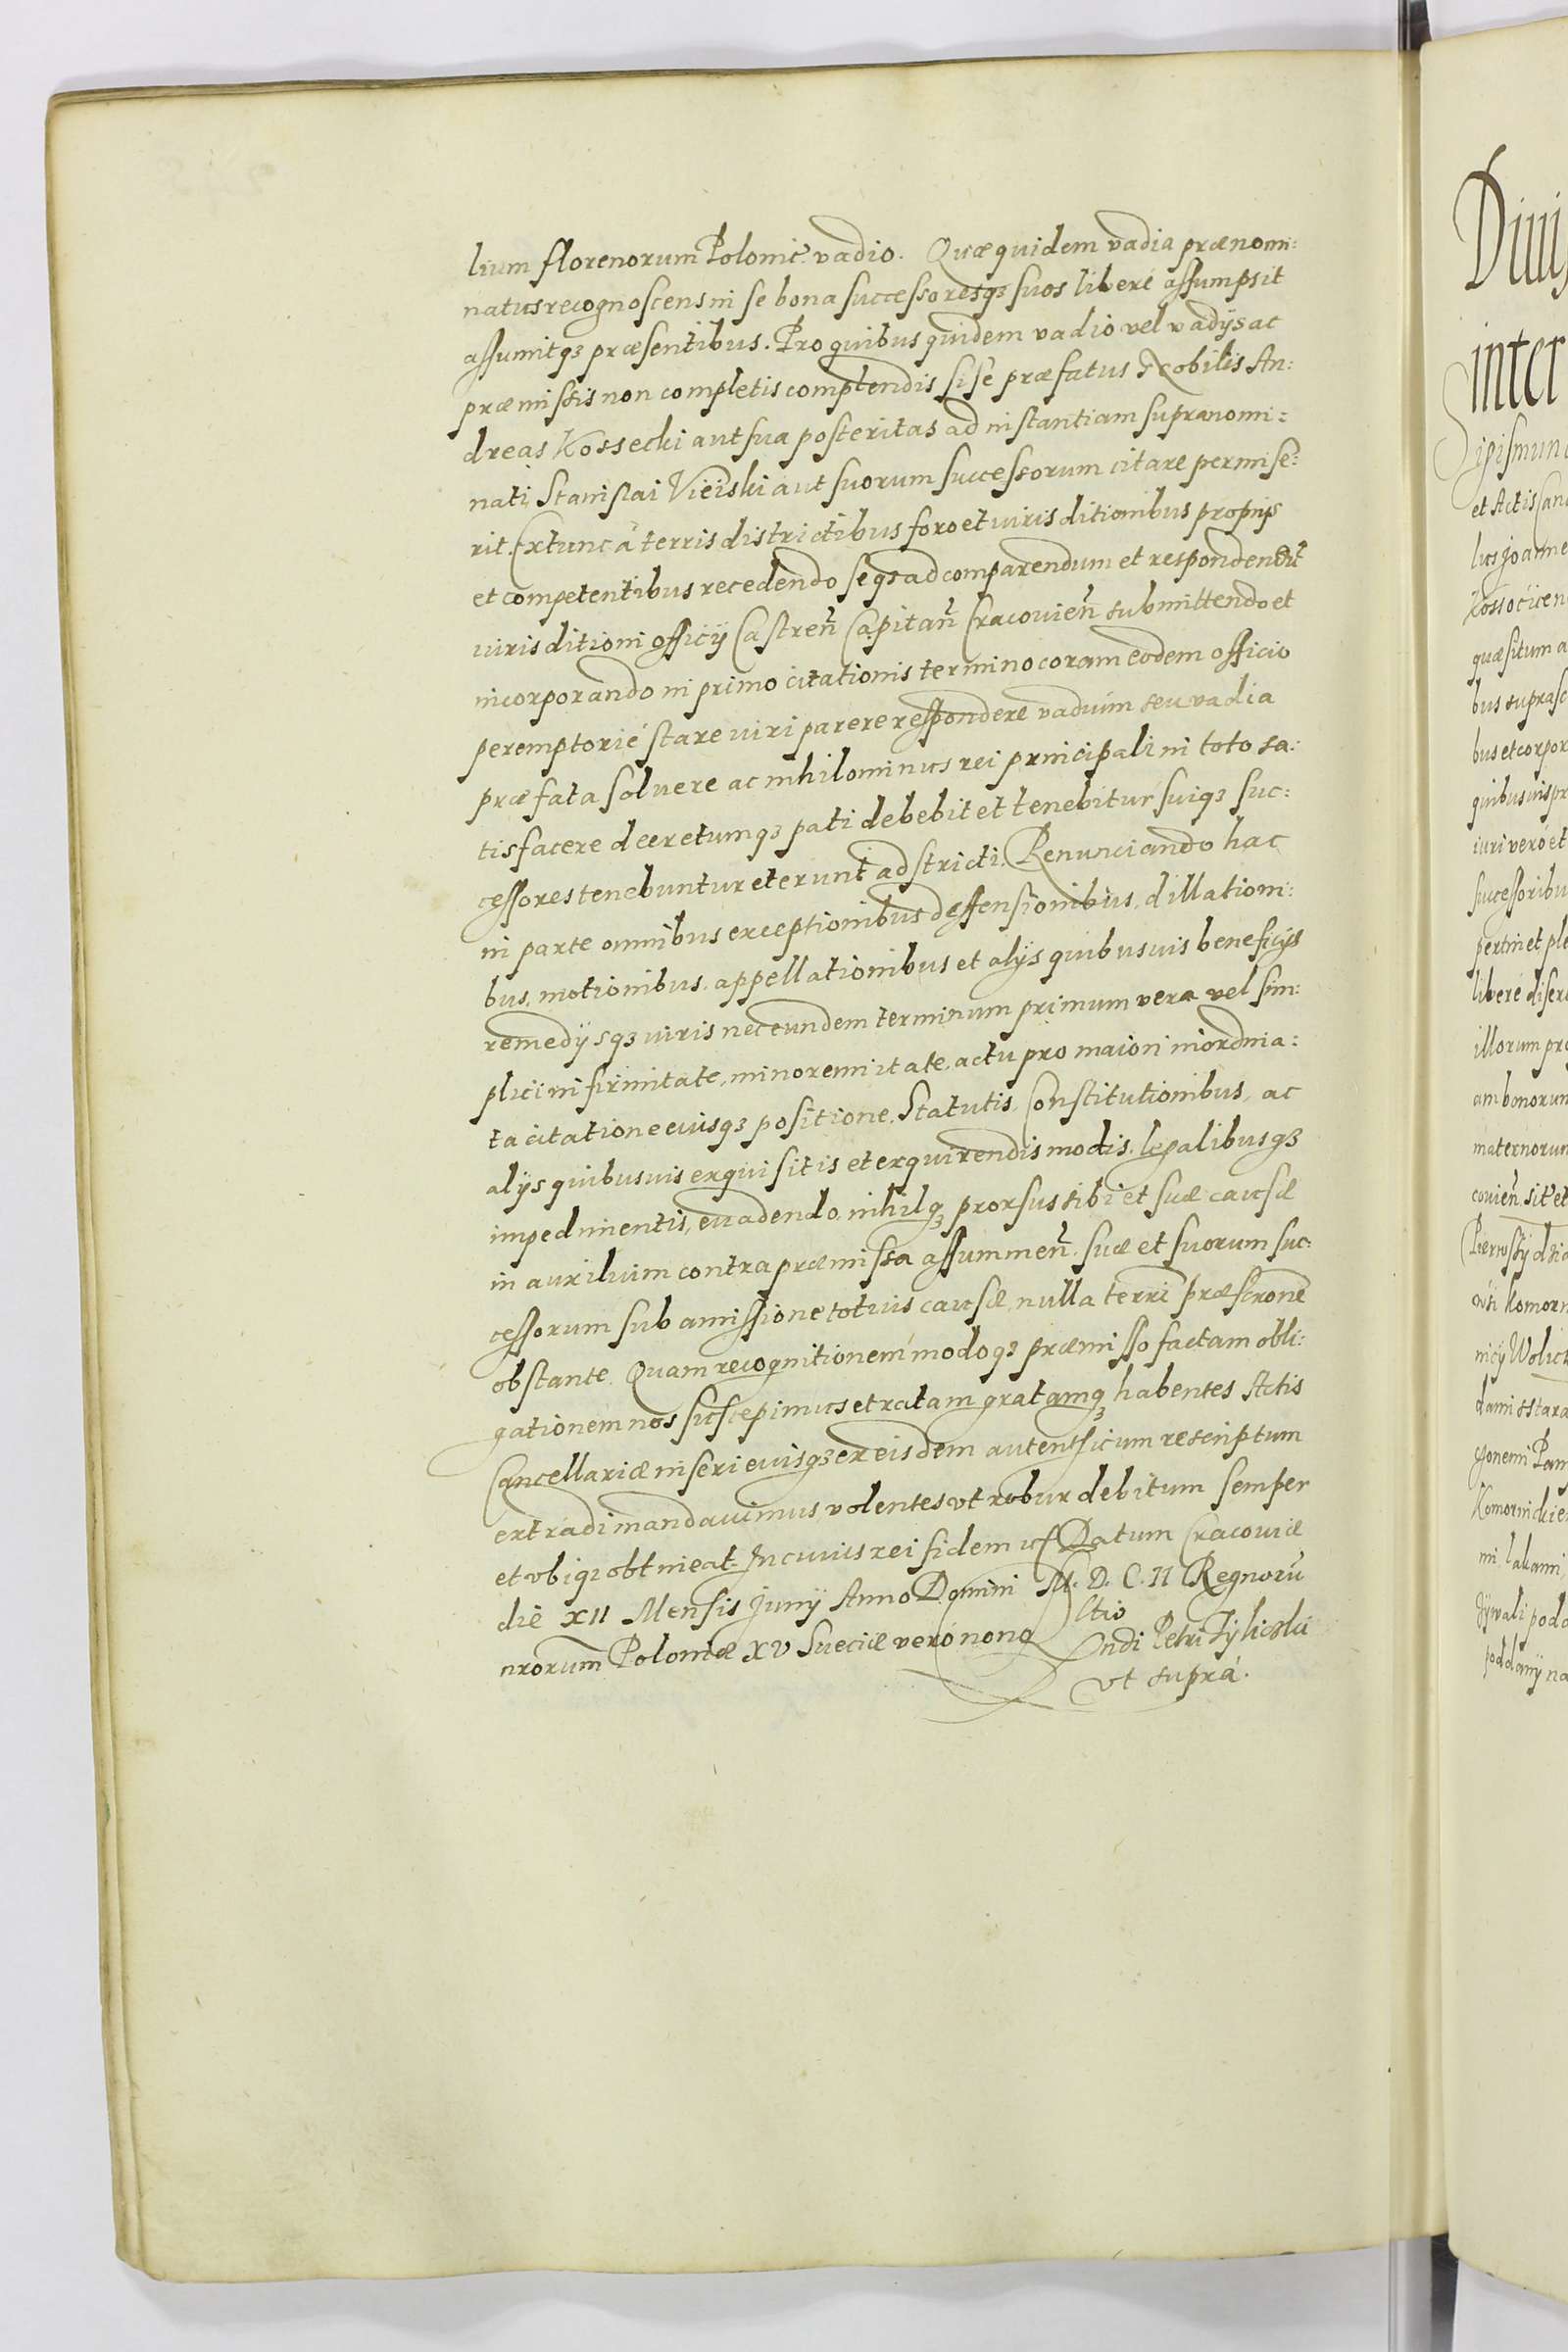 lium florenorum Polonic. vadio. Quæ quidem vadia prænomi:
natus recognoscens in se bona successoresqʒ suos liberè assumpsit
assumitqʒ præsentibus. Pro quibus quidem vadio vel vadijs ac
præmissis non completis complendis si se præfatus Nobilis An:
dreas Kossecki aut sua posteritas ad instantiam supranomi:
nati Stanislai aut suorum successorum citare permise:
rit. Extunc à terris districtibus foro et iurisditionibus proprijs
et competentibus recedendo seqʒ ad comparendum et respondendũ
iurisditioni officij Castreñ Capitañ Cracovieñ submittendo et
incorporando in primo citationis termino coram eodem officio
peremptoriè stare iuri parere respondere vadium seu vadia
præfata solvere ac nihilominus rei principali in toto sa:
tisfacere decretumqʒ pati debebit et tenebitur suiqʒ suc:
cessores tenebuntur et erunt adstricti. Renunciando hac
in parte omnibus exceptionibus deffensionibus, dillationi:
bus, motionibus, appellationibus et alijs quibusuis beneficijs
remedijsqʒ iuris nec eundem terminum primum vera vel sim:
plici infirmitate, minorennitate, actu pro maiori inordina:
ta citatione eiusqʒ positione. Statutis, Constitutionibus, ac
alijs quibusuis exquisitis et exquirendis modis, legalibusqʒ
impedimentis, euadendo, nihilqʒ prorsus sibi et suæ causæ
in auxilium contra præmissa assummeñ. suæ et suorum suc:
cessorum sub amissione totius causæ, nulla terrĩ præscrone
obstante. Quam recognitionem modoqʒ præmisso factam obli:
gationem nos suscepimus et ratam gratamqʒ habentes Actis
Cancellariæ inseri eiusqʒ ex eisdem autenthicum rescriptum
extradi mandauimus, volentes vt robur debitum semper
et vbiqʒ obtineat. In cuius rei fidem Datum Cracoviæ
die XII Mensis Junij Anno Domini M. D. C. II Regnorũ
nrorum Poloniæ XV Sueciæ verò nono
Rndi Petri Tyliczki
vt suprà.
Diui
inter
et Actis
quæsitum a
bus suprasc
bus et corpor
iuri verò et
successoribu
pertinet ple
illorum pro
am bonorum
maternorum
covieñ. sit et